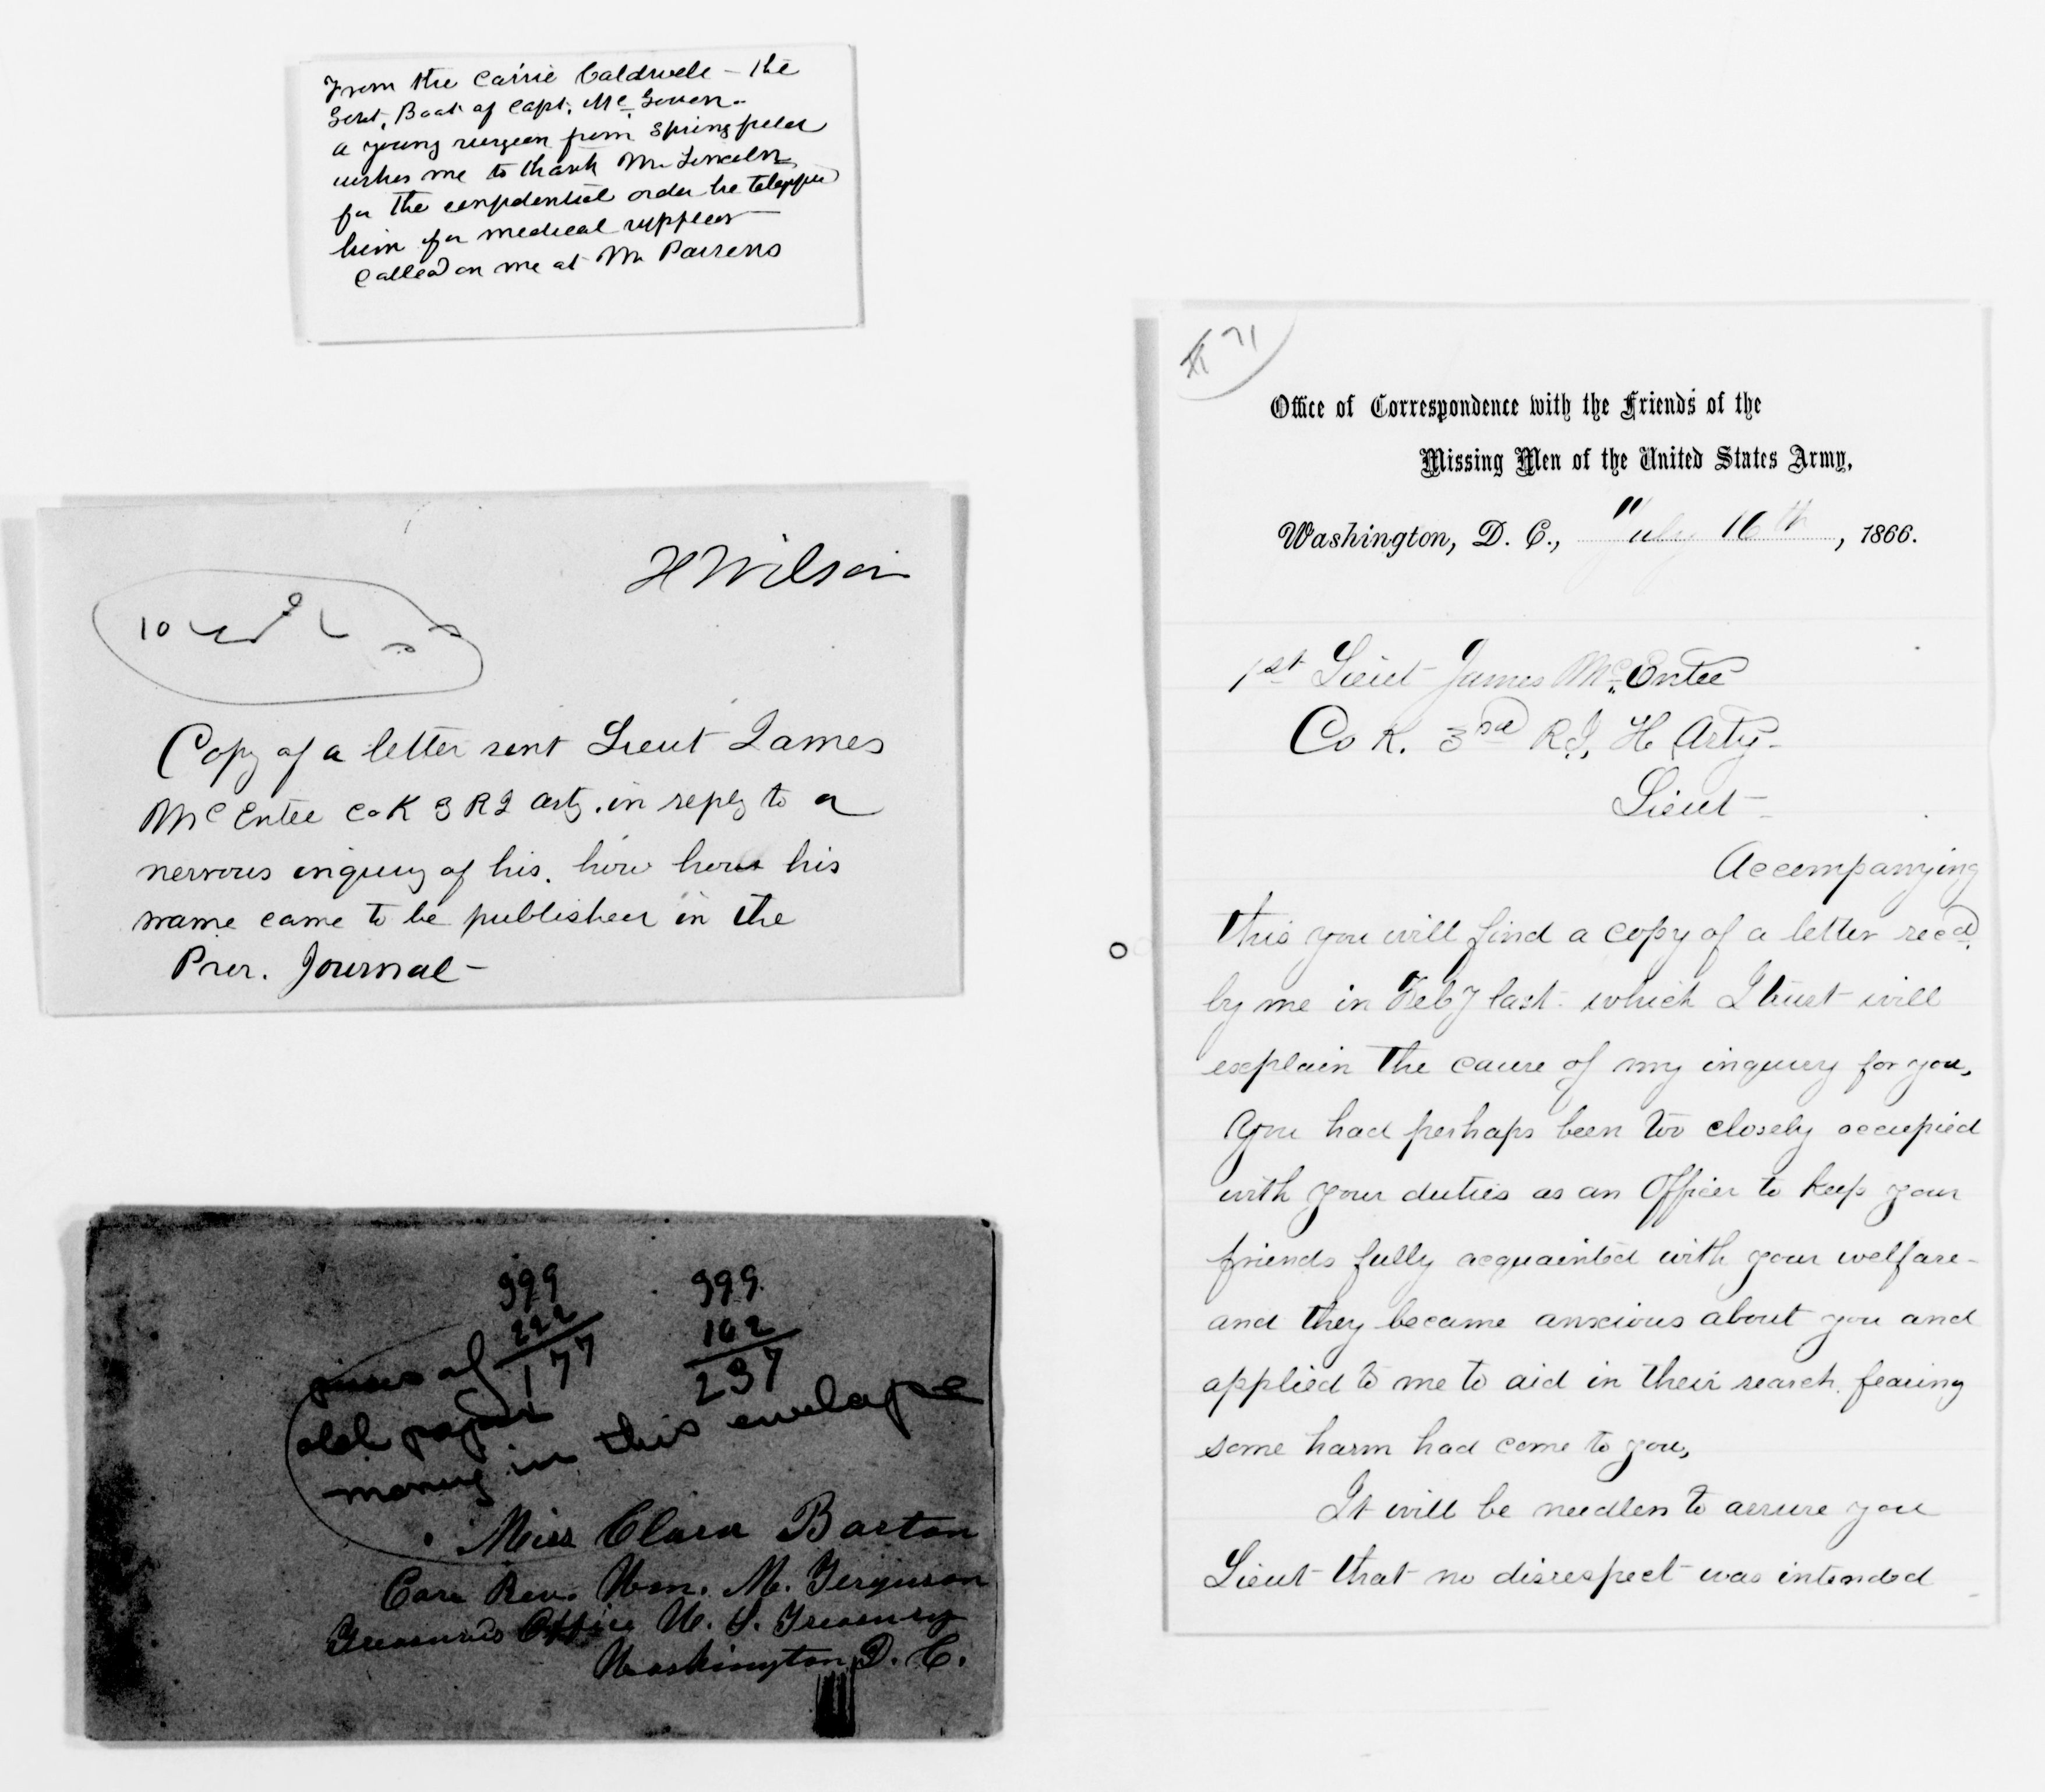 From the Carrie Caldwell – the
Govt, Boat of Capt, Mc Govern.
a young surgeon from Springfield
wishes me to thank Mr Lincoln
for the confidential order he
him for medical supplies
Called on me at Mr Parsens
H Wilson
10
Copy of a letter sent Lieut James
McEntee Co K 3 R I Arty. in reply to a
nervous inquiry of his. how his
name came to be published in the
Prov. Journal –
999 999.
222 162
177 237
pieces of
old paper
money in this envelope
Miss Clara Barton
Care Rev. Wm. M. Ferguson
Treasurers Office U. S. Treasury
Washington, D. C.
# 71
Office of Correspondence with the Friends of the
Missing Men of the United States Army,
Washington, D. C., July 16th, 1866.
1st Lieut James McEntee
Co K. 3rd R I, H Arty –
Lieut –
Accompanying
this you will find a copy of a letter recd.
by me in Feby last. which I trust will
explain the cause of my inquiry for you,
You had perhaps been too closely occupied
with your duties as an Officer to keep your
friends fully acquainted with your welfare –
and they became anxious about you and
applied to me to aid in their search, fearing
some harm had come to you,
It will be needless to assure you
Lieut that no disrespect was intended